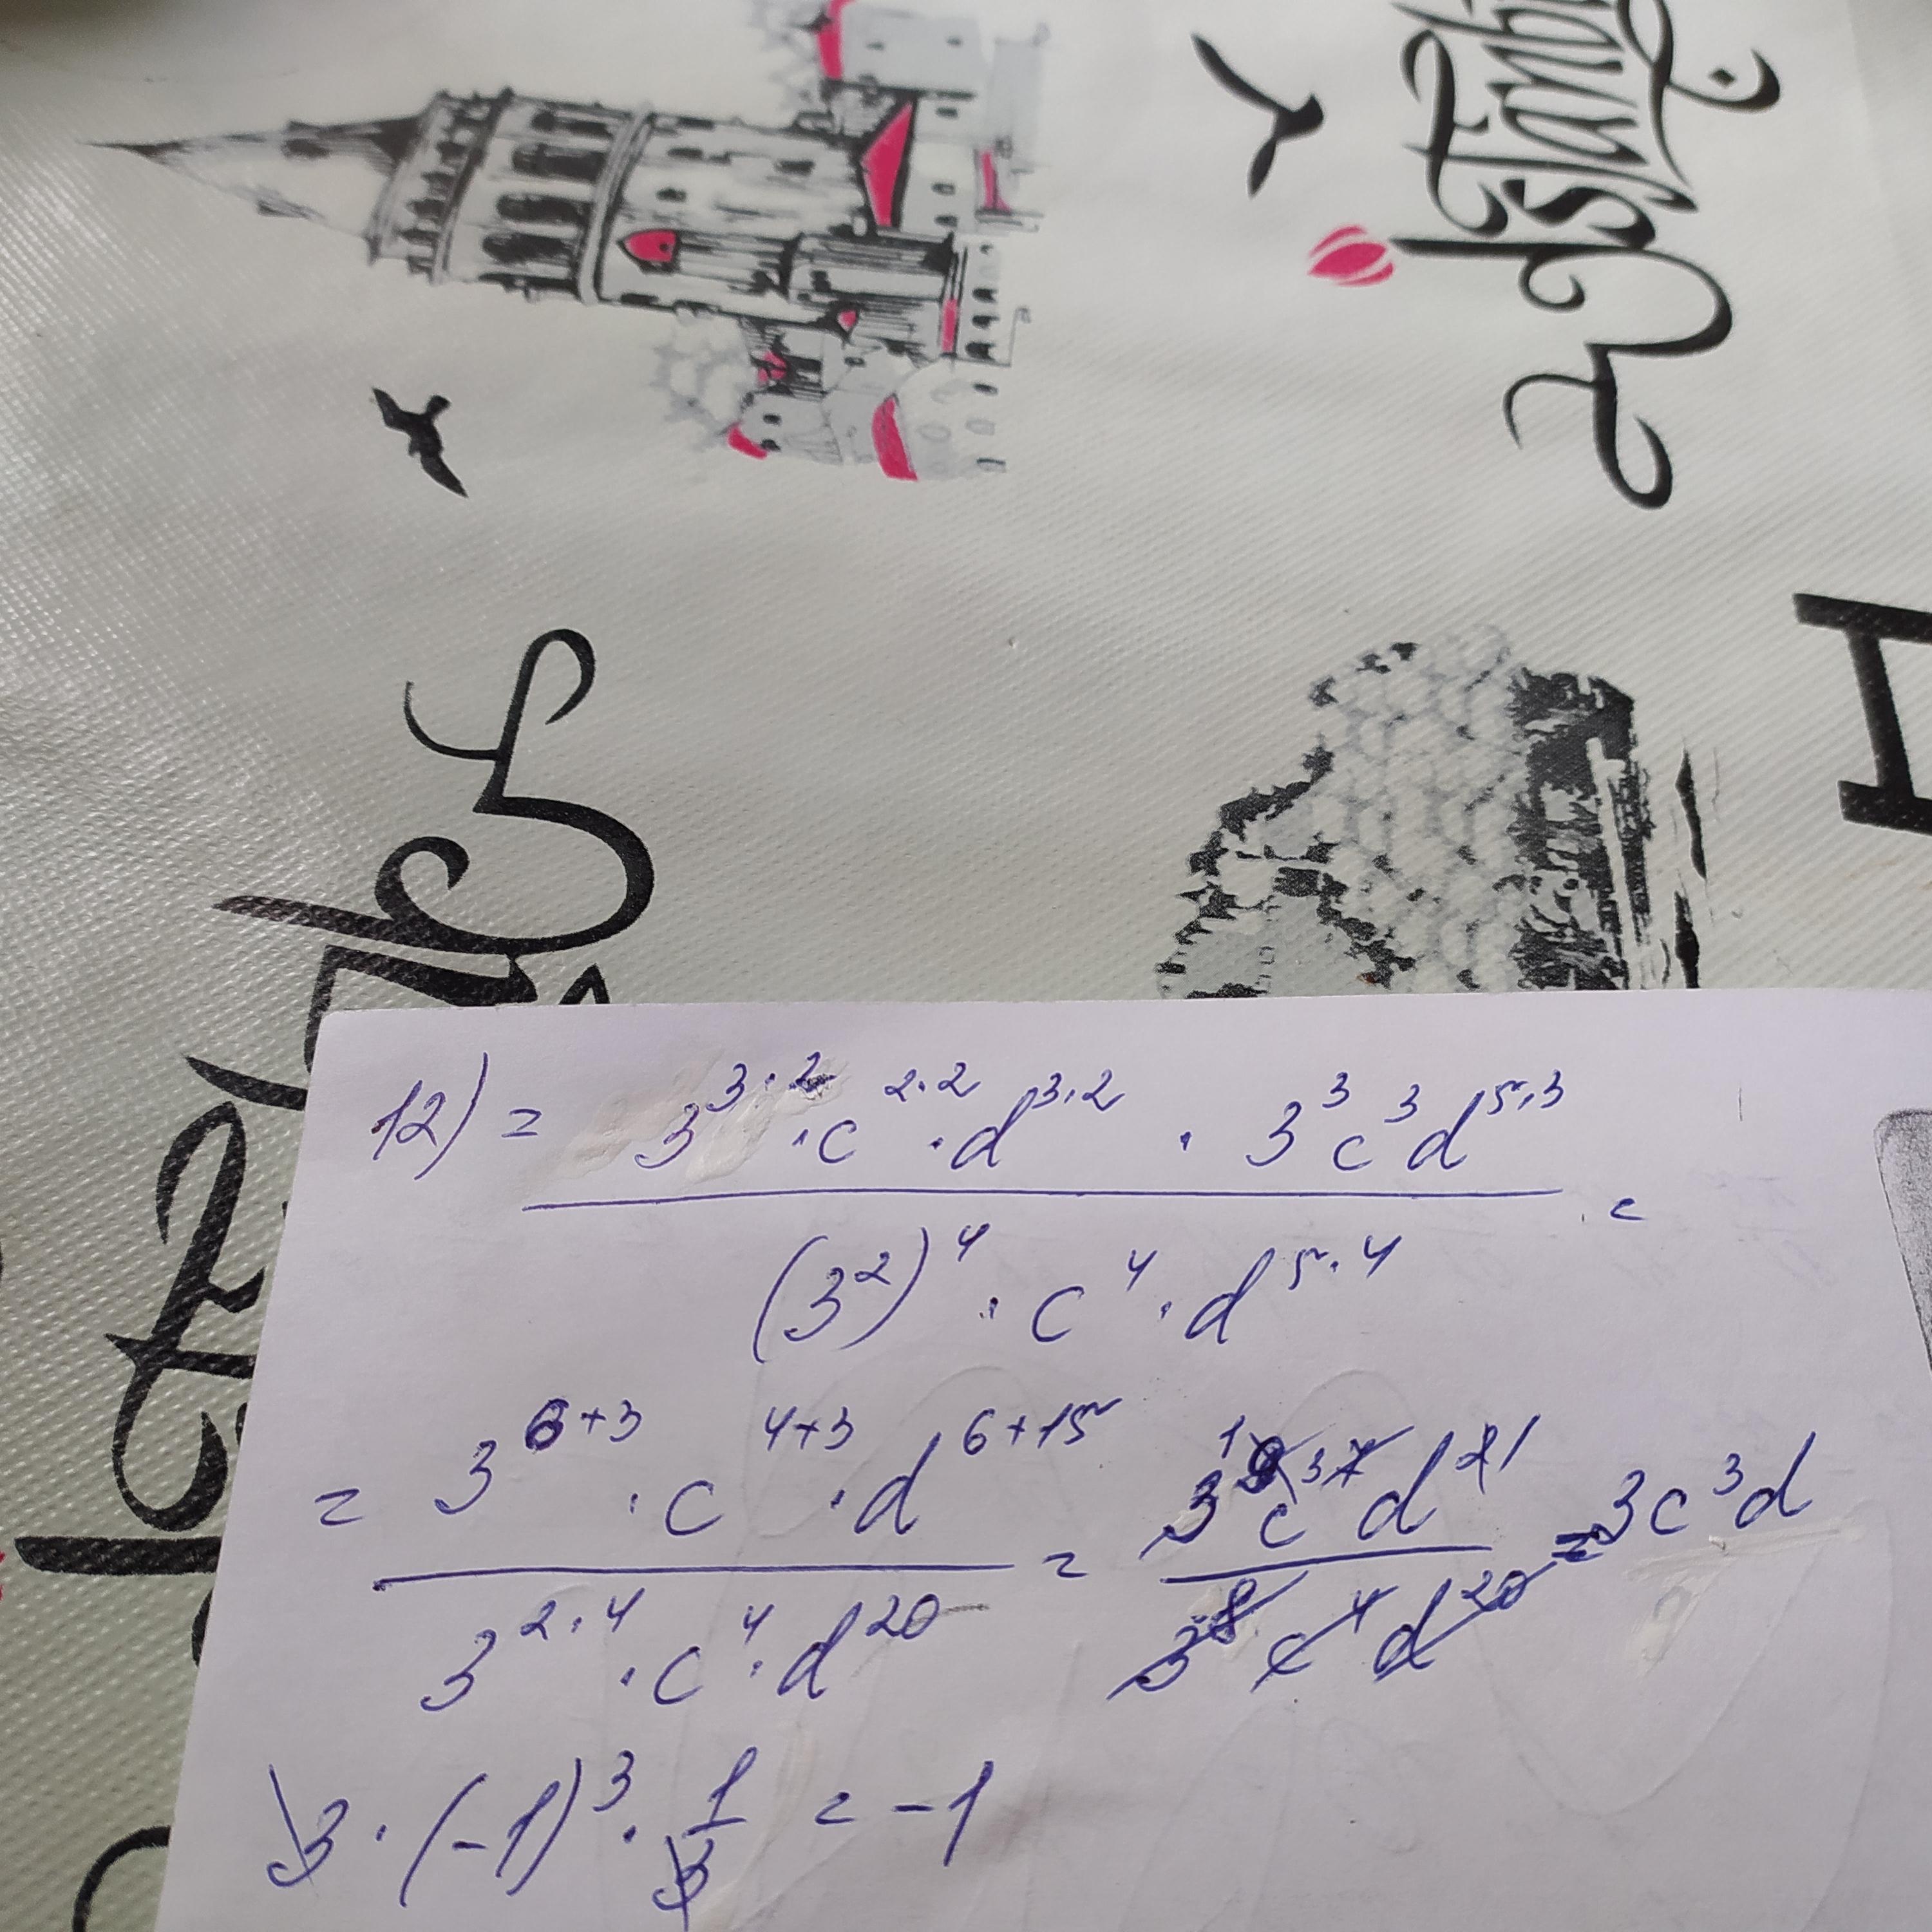 Istanbul
H
12) = 3^{3·2} · c^{2·2} · d^{3·2} · 3^3 c^3 d^{5·3} / (3^2)^4 · c^4 · d^{5·4} =
= 3^{6+3} · c^{4+3} · d^{6+15} / 3^{2·4} · c^4 · d^{20} = 3^9 c^7 d^{21} / 3^8 c^4 d^{20} = 3c^3d
3 · (-1)^3 · 1/3 = -1